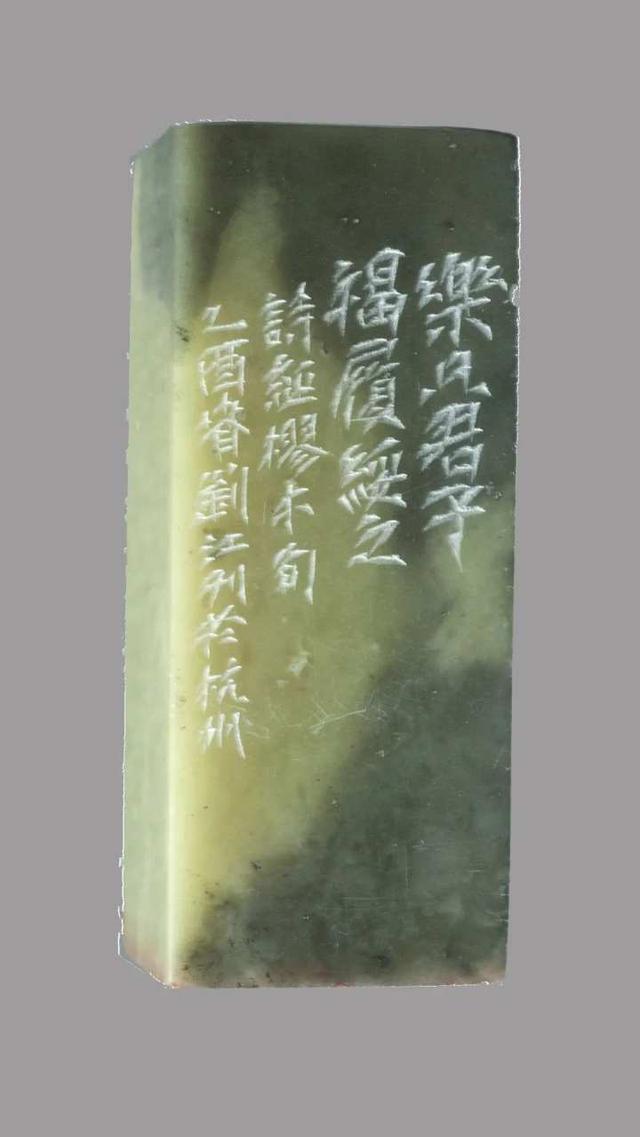 樂只君子
福履綏之
詩經樛木句
乙酉春劉江刊於杭州